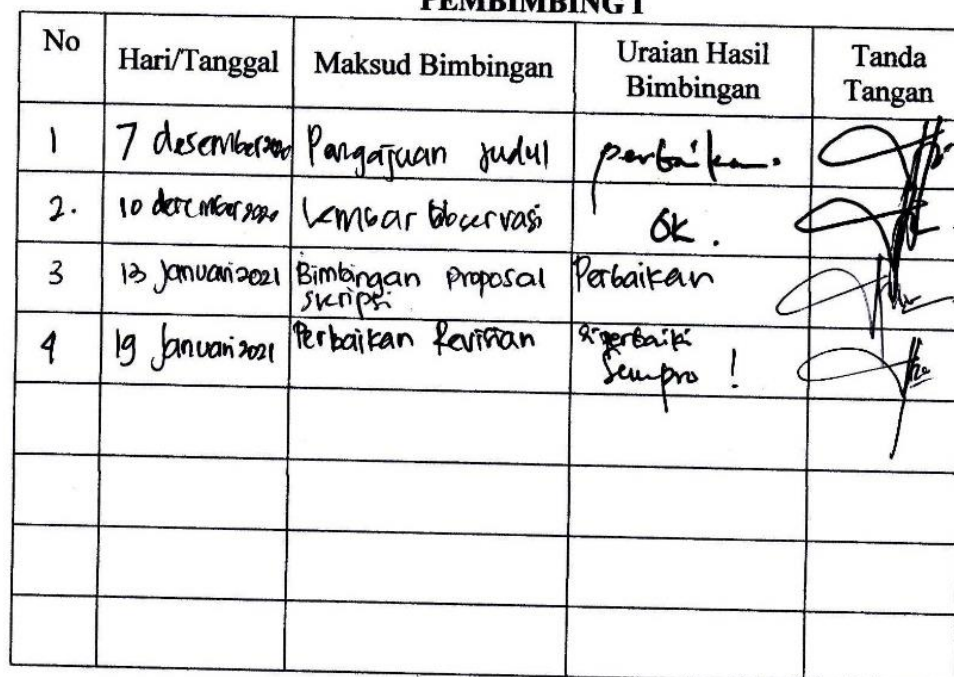 PEMBIMBING I
No Hari/Tanggal Maksud Bimbingan Uraian Hasil Bimbingan Tanda Tangan
1 7 desember 2020 Pangajuan judul perbaikan.
2. 10 desember 2020 Lembar Observasi Ok.
3 13 Januari 2021 Bimbingan proposal skripsi Perbaikan
4 19 Januari 2021 Perbaikan Revisian diperbaiki Sempro !